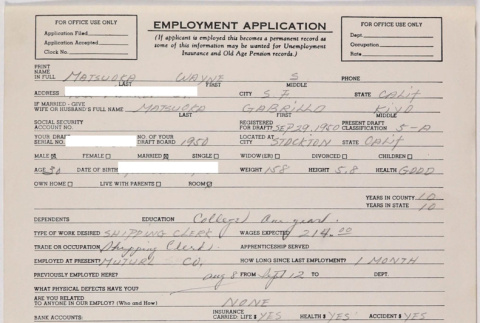 FOR OFFICE USE ONLY
Application Filed
Application Accepted
Clock No.
EMPLOYMENT APPLICATION
(If applicant is employed this becomes a permanent record as
some of this information may be wanted for Unemployment
Insurance and Old Age Pension records.)
FOR OFFICE USE ONLY
Dept.
Occupation
Rate
PRINT
NAME
IN FULL MATSUOKA WAYNE S PHONE
LAST FIRST MIDDLE
ADDRESS CITY S.F. STATE Calif
IF MARRIED - GIVE
WIFE OR HUSBAND'S FULL NAME MATSUOKA GABRILLO KIYO
LAST FIRST MIDDLE
SOCIAL SECURITY
ACCOUNT NO. REGISTERED
FOR DRAFT? SEP 29, 1950 PRESENT DRAFT
CLASSIFICATION 5-A
YOUR DRAFT
SERIAL NO. NO. OF YOUR
DRAFT BOARD 1950 LOCATED AT
CITY STOCKTON STATE Calif
MALE FEMALE MARRIED SINGLE WIDOW(ER) DIVORCED CHILDREN
AGE 30 DATE OF BIRTH WEIGHT 158 HEIGHT 5.8 HEALTH GOOD
OWN HOME LIVE WITH PARENTS ROOM
YEARS IN COUNTY 10
YEARS IN STATE 10
DEPENDENTS EDUCATION College one year.
TYPE OF WORK DESIRED SHIPPING CLERK WAGES EXPECTED 214.00
TRADE OR OCCUPATION Shipping Clerk APPRENTICESHIP SERVED
EMPLOYED AT PRESENT CO. HOW LONG SINCE LAST EMPLOYMENT? 1 MONTH
PREVIOUSLY EMPLOYED HERE? Aug 8 FROM Sept 12 TO DEPT.
WHAT PHYSICAL DEFECTS HAVE YOU?
ARE YOU RELATED
TO ANYONE IN OUR EMPLOY? (Who and How) NONE
BANK ACCOUNTS: INSURANCE
CARRIED: LIFE $ YES HEALTH $ YES ACCIDENT $ YES